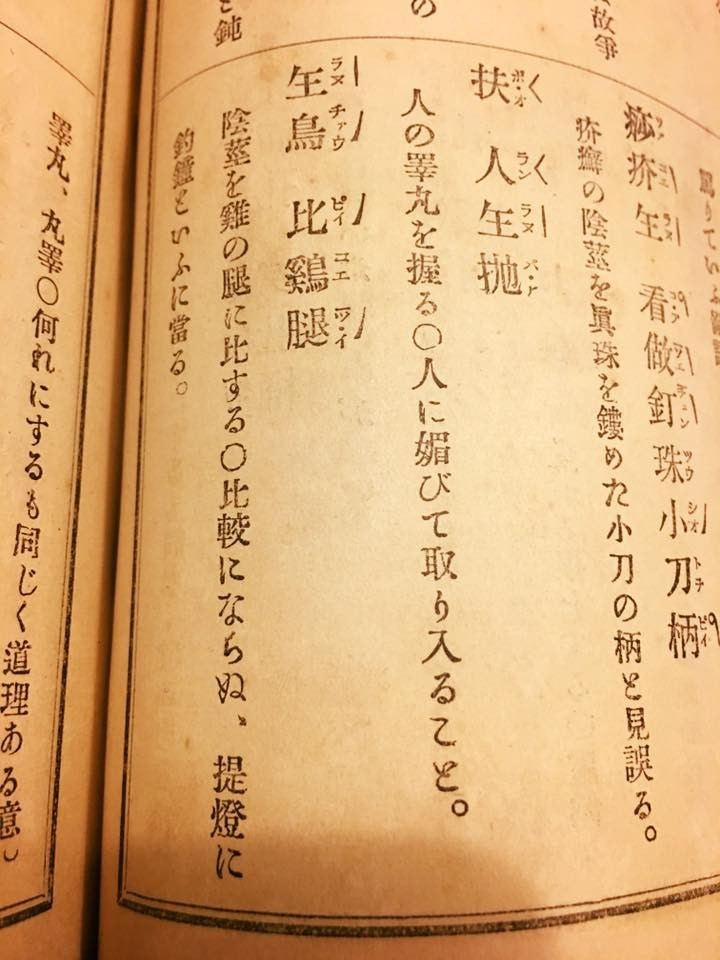 故爭
の
と鈍
疥玍 看做釘珠小刀柄
疥癬の陰莖を眞珠を鏤めた小刀の柄と見誤る。
扶 人玍抛
人の睾丸を握る〇人に媚びて取り入ること。
玍鳥 比鷄腿
陰莖を雞の腿に比する〇比較にならぬ、提燈に
釣鐘といふに當る。
睾丸、丸睾〇何れにするも同じく道理ある意。